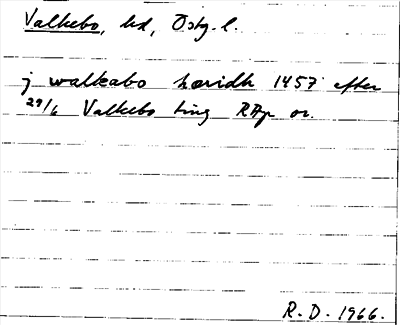 Valkebo, hd, Östg. l.
j walkabo hæridh 1457 efter
29/6 Valkebo ting RApp or.
R. D. 1966.